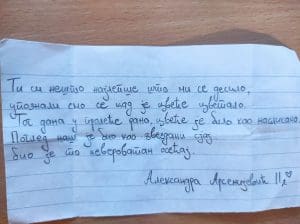 Ти си нешто најлепше што ми се десило,
упознали смо се кад је цвеће цветало.
Тог дана у пролеће рано, цвеће је било као насликано.
Поглед наш је био као звездани сјај
био је то невероватан осећај.
Александра Арсенијевић II₂ ♡